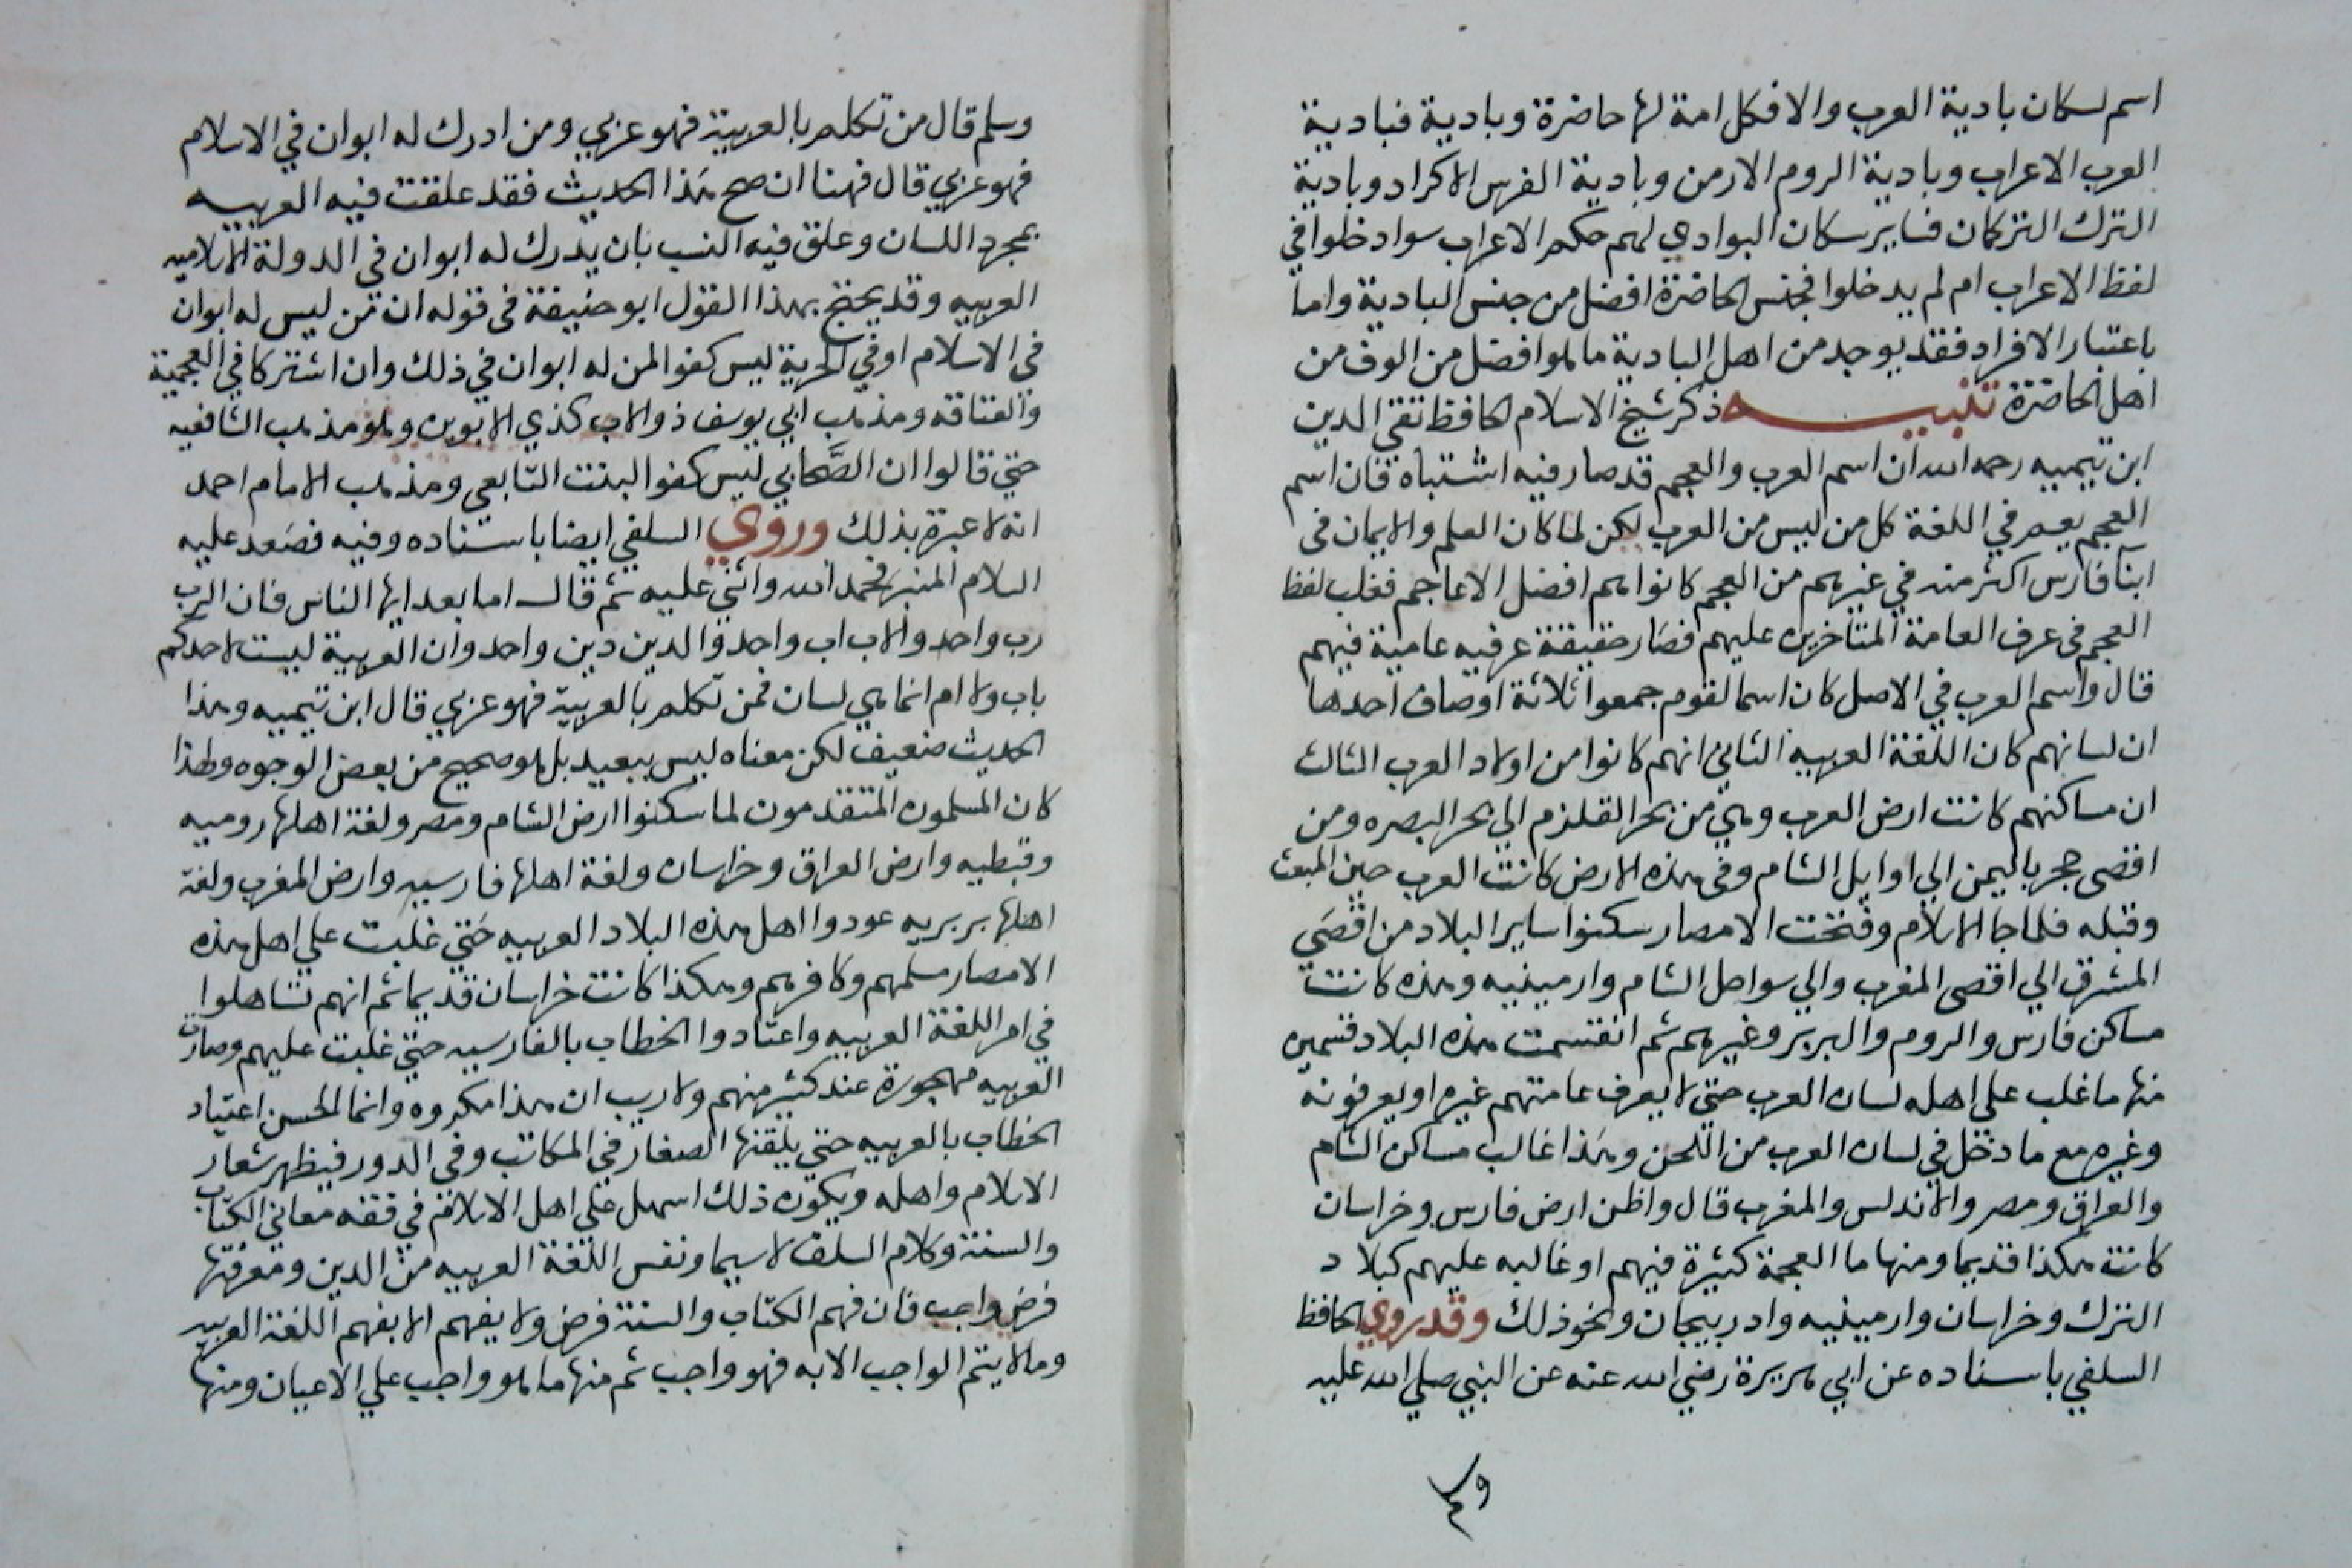 اسم لسكان بادية العرب والا فكل امة لها حاضرة وبادية فبادية
العرب الاعراب وبادية الروم الارمن وبادية الفرس الاكراد وبادية
الترك التركمان فساير سكان البوادي لهم حكم الاعراب سوا دخلوا في
لفظ الاعراب ام لم يدخلوا فجنس الحاضرة افضل من جنس البادية واما
باعتبار الافراد فقد يوجد من اهل البادية ما هو افضل من الوف من
اهل الحاضرة تنبيه ذكر شيخ الاسلام الحافظ تقي الدين
ابن تيميه رحمه الله ان اسم العرب والعجم قد صار فيه اشتباه فان اسم
العجم يعم في اللغة كل من ليس من العرب لكن لما كان العلم والايمان في
ابنا فارس اكثر منه في غيرهم من العجم كانوا هم افضل الاعاجم فغلب لفظ
العجم في عرف العامة المتاخرين عليهم فصار حقيقة عرفيه عامية فيهم
قال واسم العرب في الاصل كان اسما لقوم جمعوا ثلاثة اوصاف احدها
ان لسانهم كان اللغة العربيه الثاني انهم كانوا من اولاد العرب الثالث
ان مساكنهم كانت ارض العرب وهي من بحر القلزم الي بحر البصره ومن
اقصى حجر باليمن الي اوايل الشام وفي هذه الارض كانت العرب حين المبعث
وقبله فلما جا الاسلام وفتحت الامصار سكنوا ساير البلاد من اقصي
المشرق الي اقصى المغرب والي سواحل الشام وارمينيه وهذه كانت
مساكن فارس والروم والبربر وغيرهم ثم انقسمت هذه البلاد قسمين
منها ما غلب علي اهله لسان العرب حتي لا يعرف عامتهم غيره او يعرفونه
وغيره مع ما دخل في لسان العرب من اللحن وهذا غالب مساكن الشام
والعراق ومصر والاندلس والمغرب قال واظن ارض فارس وخراسان
كانت هكذا قديما ومنها ما العجمة كثيرة فيهم او غالبه عليهم كبلاد
الترك وخراسان وارمينيه وادربيجان ونحو ذلك وقد روي الحافظ
السلفي باسناده عن ابي هريرة رضي الله عنه عن النبي صلي الله عليه
وسلم قال من تكلم بالعربية فهو عربي ومن ادرك له ابوان في الاسلام
فهو عربي قال فهنا ان صح هذا الحديث فقد علقت فيه العربيه
بمجرد اللسان وعلق فيه النسب بان يدرك له ابوان في الدولة الاسلاميه
العربيه وقد يحتج بهذا القول ابو حنيفة في قوله ان من ليس له ابوان
في الاسلام او في الحرية ليس كفوا لمن له ابوان في ذلك وان اشتركا في العجمية
والعتاقه ومذهب ابي يوسف ذو الاب كذي الابوين وهو مذهب الشافعيه
حتي قالوا ان الصحابي ليس كفوا لبنت التابعي ومذهب الامام احمد
انه لا عبرة بذلك وروي السلفي ايضا باسناده وفيه فصعد عليه
السلام المنبر فحمد الله واثني عليه ثم قال اما بعد ايها الناس فان الرب
رب واحد والاب اب واحد والدين دين واحد وان العربية ليست لاحدكم
باب ولا ام انما هي لسان فمن تكلم بالعربية فهو عربي قال ابن تيميه وهذا
الحديث ضعيف لكن معناه ليس ببعيد بل هو صحيح من بعض الوجوه ولهذا
كان المسلمون المتقدمون لما سكنوا ارض الشام ومصر ولغة اهلها روميه
وقبطيه وارض العراق وخراسان ولغة اهلها فارسيه وارض المغرب ولغة
اهلها بربريه عودوا اهل هذه البلاد العربيه حتي غلبت علي اهل هذه
الامصار مسلمهم وكافرهم وهكذا كانت خراسان قديما ثم انهم تساهلوا
في امر اللغة العربيه واعتادوا الخطاب بالفارسيه حتي غلبت عليهم وصارت
العربيه مهجورة عند كثير منهم ولا ريب ان هذا مكروه وانما الحسن اعتياد
الخطاب بالعربيه حتي يلقنها الصغار في المكاتب وفي الدور فيظهر شعار
الاسلام واهله ويكون ذلك اسهل علي اهل الاسلام في فقه معاني الكتاب
والسنة وكلام السلف لا سيما ونفس اللغة العربيه من الدين ومعرفتها
فرض واجب فان فهم الكتاب والسنة فرض ولا يفهم الا بفهم اللغة العربيه
وما لا يتم الواجب الا به فهو واجب ثم منها ما هو واجب علي الاعيان ومنها